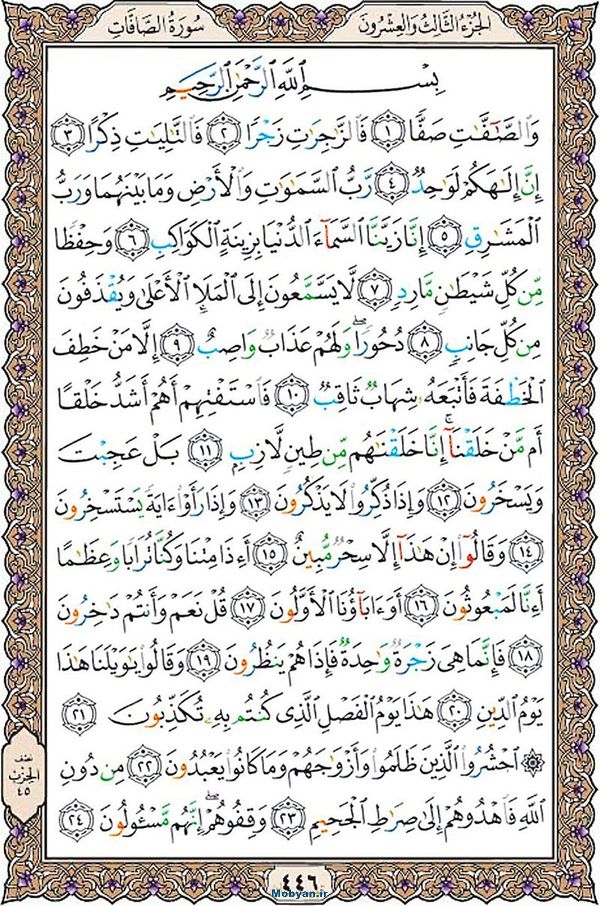 سُورَةُ الصَّافَّاتِ
الجُزءُ الثَّالِثُ وَالعِشرُونَ
بِسْمِ ٱللَّهِ ٱلرَّحْمَٰنِ ٱلرَّحِيمِ
وَٱلصَّٰٓفَّٰتِ صَفًّا ١ فَٱلزَّٰجِرَٰتِ زَجْرًا ٢ فَٱلتَّٰلِيَٰتِ ذِكْرًا ٣
إِنَّ إِلَٰهَكُمْ لَوَٰحِدٌ ٤ رَّبُّ ٱلسَّمَٰوَٰتِ وَٱلْأَرْضِ وَمَا بَيْنَهُمَا وَرَبُّ
ٱلْمَشَٰرِقِ ٥ إِنَّا زَيَّنَّا ٱلسَّمَآءَ ٱلدُّنْيَا بِزِينَةٍ ٱلْكَوَاكِبِ ٦ وَحِفْظًا
مِّن كُلِّ شَيْطَٰنٍ مَّارِدٍ ٧ لَّا يَسَّمَّعُونَ إِلَى ٱلْمَلَإِ ٱلْأَعْلَىٰ وَيُقْذَفُونَ
مِن كُلِّ جَانِبٍ ٨ دُحُورًا ۖ وَلَهُمْ عَذَابٌ وَاصِبٌ ٩ إِلَّا مَنْ خَطِفَ
ٱلْخَطْفَةَ فَأَتْبَعَهُۥ شِهَابٌ ثَاقِبٌ ١٠ فَٱسْتَفْتِهِمْ أَهُمْ أَشَدُّ خَلْقًا
أَم مَّنْ خَلَقْنَآ ۚ إِنَّا خَلَقْنَٰهُم مِّن طِينٍ لَّازِبٍ ١١ بَلْ عَجِبْتَ
وَيَسْخَرُونَ ١٢ وَإِذَا ذُكِّرُوا۟ لَا يَذْكُرُونَ ١٣ وَإِذَا رَأَوْا۟ ءَايَةً يَسْتَسْخِرُونَ
١٤ وَقَالُوٓا۟ إِنْ هَٰذَآ إِلَّا سِحْرٌ مُّبِينٌ ١٥ أَءِذَا مِتْنَا وَكُنَّا تُرَابًا وَعِظَٰمًا
أَءِنَّا لَمَبْعُوثُونَ ١٦ أَوَءَابَآؤُنَا ٱلْأَوَّلُونَ ١٧ قُلْ نَعَمْ وَأَنتُمْ دَٰخِرُونَ
١٨ فَإِنَّمَا هِىَ زَجْرَةٌ وَٰحِدَةٌ فَإِذَا هُمْ يَنظُرُونَ ١٩ وَقَالُوا۟ يَٰوَيْلَنَا هَٰذَا
يَوْمُ ٱلدِّينِ ٢٠ هَٰذَا يَوْمُ ٱلْفَصْلِ ٱلَّذِى كُنتُم بِهِۦ تُكَذِّبُونَ ٢١
۞ ٱحْشُرُوا۟ ٱلَّذِينَ ظَلَمُوا۟ وَأَزْوَٰجَهُمْ وَمَا كَانُوا۟ يَعْبُدُونَ ٢٢ مِن دُونِ
ٱللَّهِ فَٱهْدُوهُمْ إِلَىٰ صِرَٰطِ ٱلْجَحِيمِ ٢٣ وَقِفُوهُمْ ۖ إِنَّهُم مَّسْـُٔولُونَ ٢٤
نصف
الحِزْب
٤٥
٤٤٦
Mobyan.ir